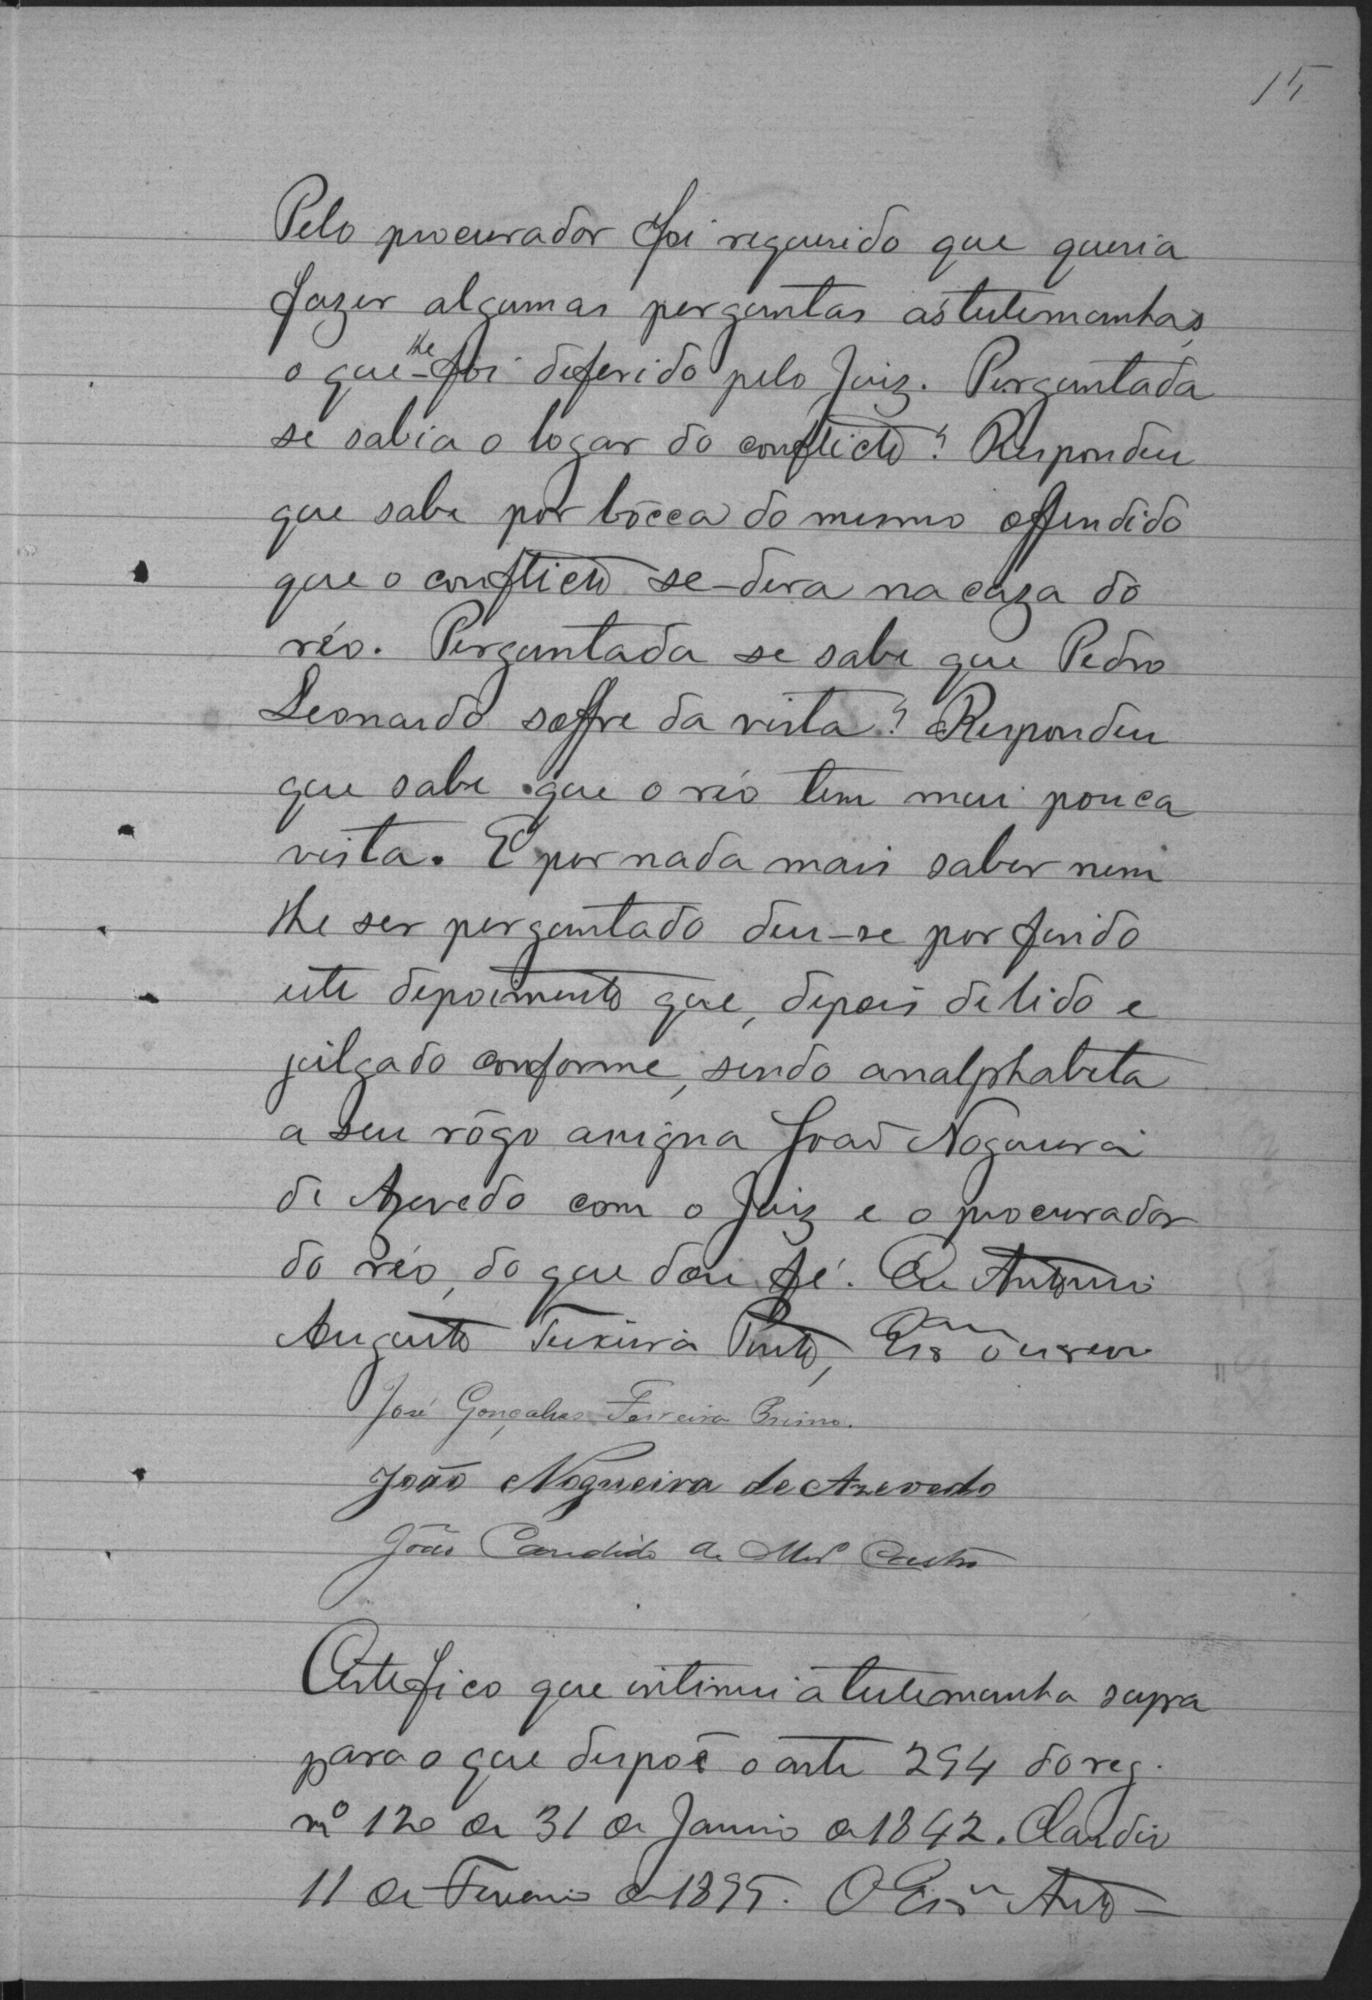 15
Pelo procurador foi requerido que queria
fazer algumas perguntas ás testemunhas,
o que lhe-foi deferido pelo Juiz. Perguntada
se sabia o logar do conflicto? Respondeu
que sabe por bôcca do mesmo offendido
que o conflicto se-dera na caza do
réo. Perguntada se sabe que Pedro
Leonardo soffre da vista? Respondeu
que sabe que o réo tem mui pouca
vista. E por nada mais saber nem
lhe ser perguntado deu-se por findo
este depoimento que, depois de lido e
julgado conforme, sendo analphabeta
a seu rôgo assigna João Nogueira
de Azevedo com o Juiz e o procurador
do réo, do que dou fé. Eu Antonio
Augusto Teixeira Pinto, Esam o escrevi
José Gonçalves Ferreira Primo.
João Nogueira de Azevedo
João Candido de Mel Castro
Certefico que intimei a testemunha supra
para o que despoê o arte 294 do reg.
nº 120 de 31 de Janeiro de 1842. Claudio
11 de Fevereiro de 1895. O Esam Anto-